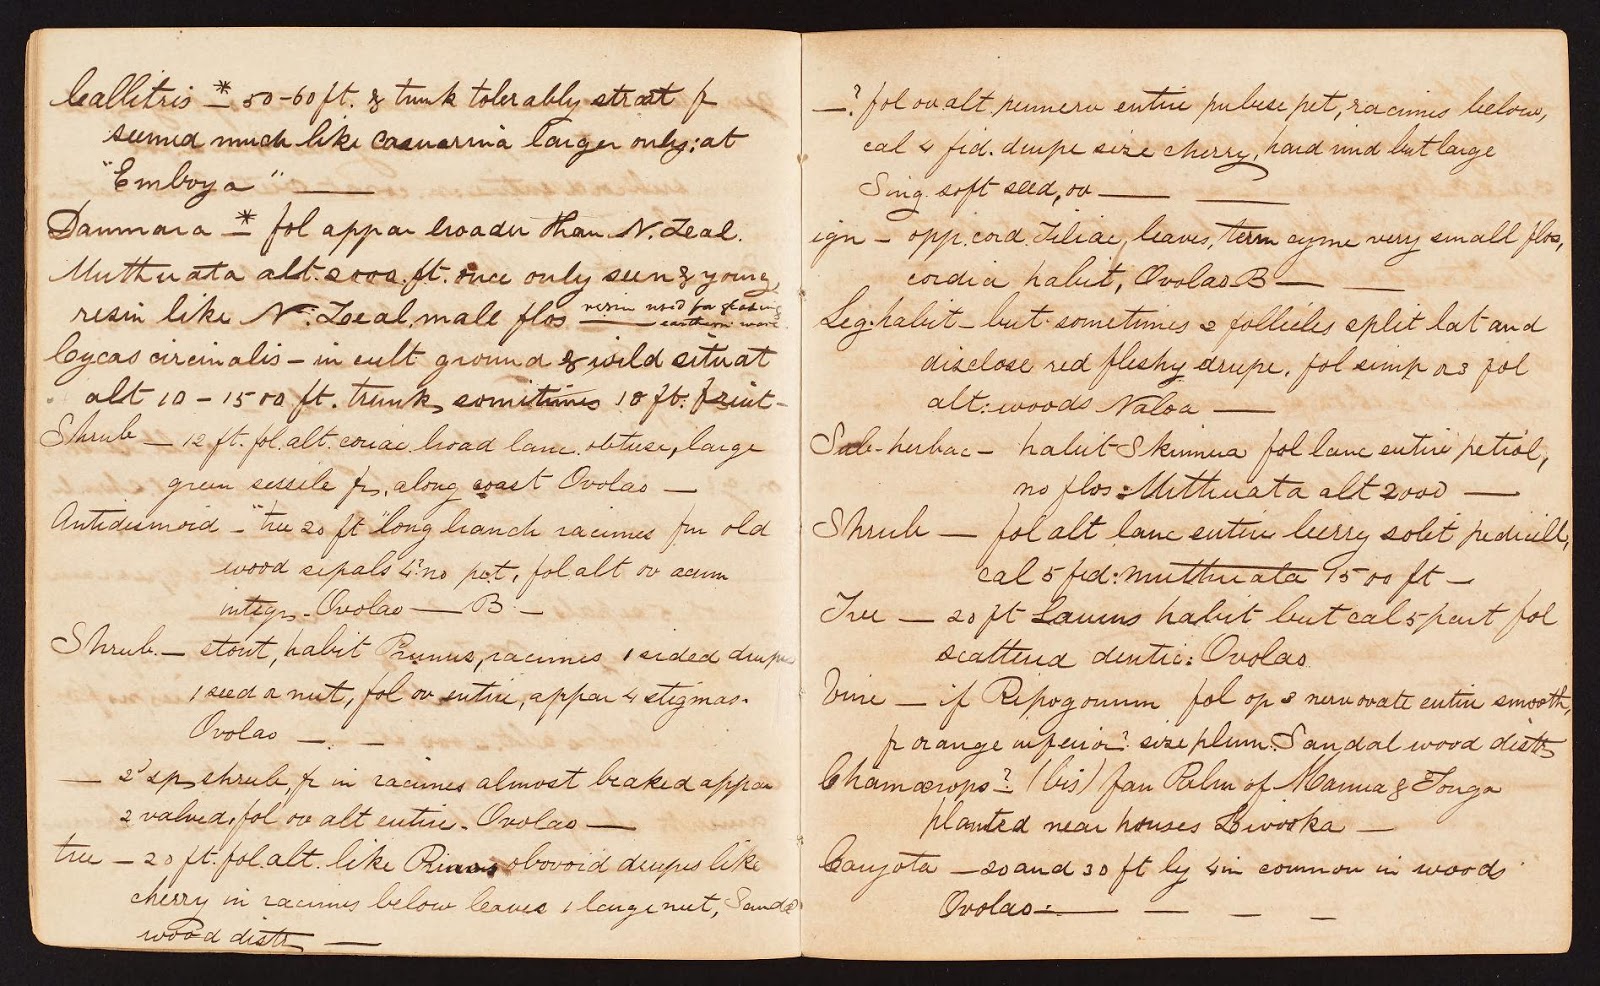 Callitris * 50-60 ft. & trunk tolerably strait fr
seemed much like Casuarina larger only; at
"Emboya" —
Dammara * fol appar broader than N. Zeal.
Muthuata alt. 2000. ft. once only seen & young
resin like N. Zeal. male flos — resin used for glazing
earthern ware
Cycas circinalis – in cult ground & wild situat
alt 10 – 1500 ft. trunk sometimes 18 ft. fruit –
Shrub – 12 ft. fol. alt. coriac broad lanc. obtuse, large
green sessile fr, along coast Ovolao —
Antidesmoid – "tree 20 ft" long branch racimes fm old
wood sepals 4? no pet, fol alt ov acum
integr – Ovolao — B –
Shrub – stout, habit Prunus, racimes 1 sided drupe
1 seed or nut, fol ov entire, appar 4 stigmas.
Ovolao — . —
— 2d sp shrub, fr in racimes almost beaked appar
2 valved, fol ov alt entire – Ovolao —
tree – 20 ft. fol. alt. like obovoid drupes like
cherry in racimes below leaves 1 large nut, Sandal
wood distr —
—? fol ov alt. entire pet, racimes below,
cal 4 fid. drupe size cherry, hard rind but large
Sing. soft seed, ov — —
ign – opp. cord Tiliac, leaves, term cyme very small flos,
cordia habit, Ovolao B — —
Leg. habit – but sometimes 2 follicles split lat and
disclose red fleshy drupe, fol simp or 3 fol
alt: woods Naloa —
Sub-herbac – habit Skinnera fol lanc entire petiol,
no flos: Muthuata alt 2000 —
Shrub — fol alt lanc entire berry solit pedicell,
cal 5 fid: Muthuata 1500 ft –
Tree — 20 ft Laurus habit but cal 5 part fol
scattered dentic: Ovolao
Vine — if Ripogonum fol op 3 nerv ovate entire smooth,
fr orange inferior? size plum. Sandal wood distr
Chamærops? (bis) fan Palm of Manua & Tonga
planted near houses Livooka —
Caryota – 20 and 30 ft by 4 in common in woods
Ovolao – — — — —